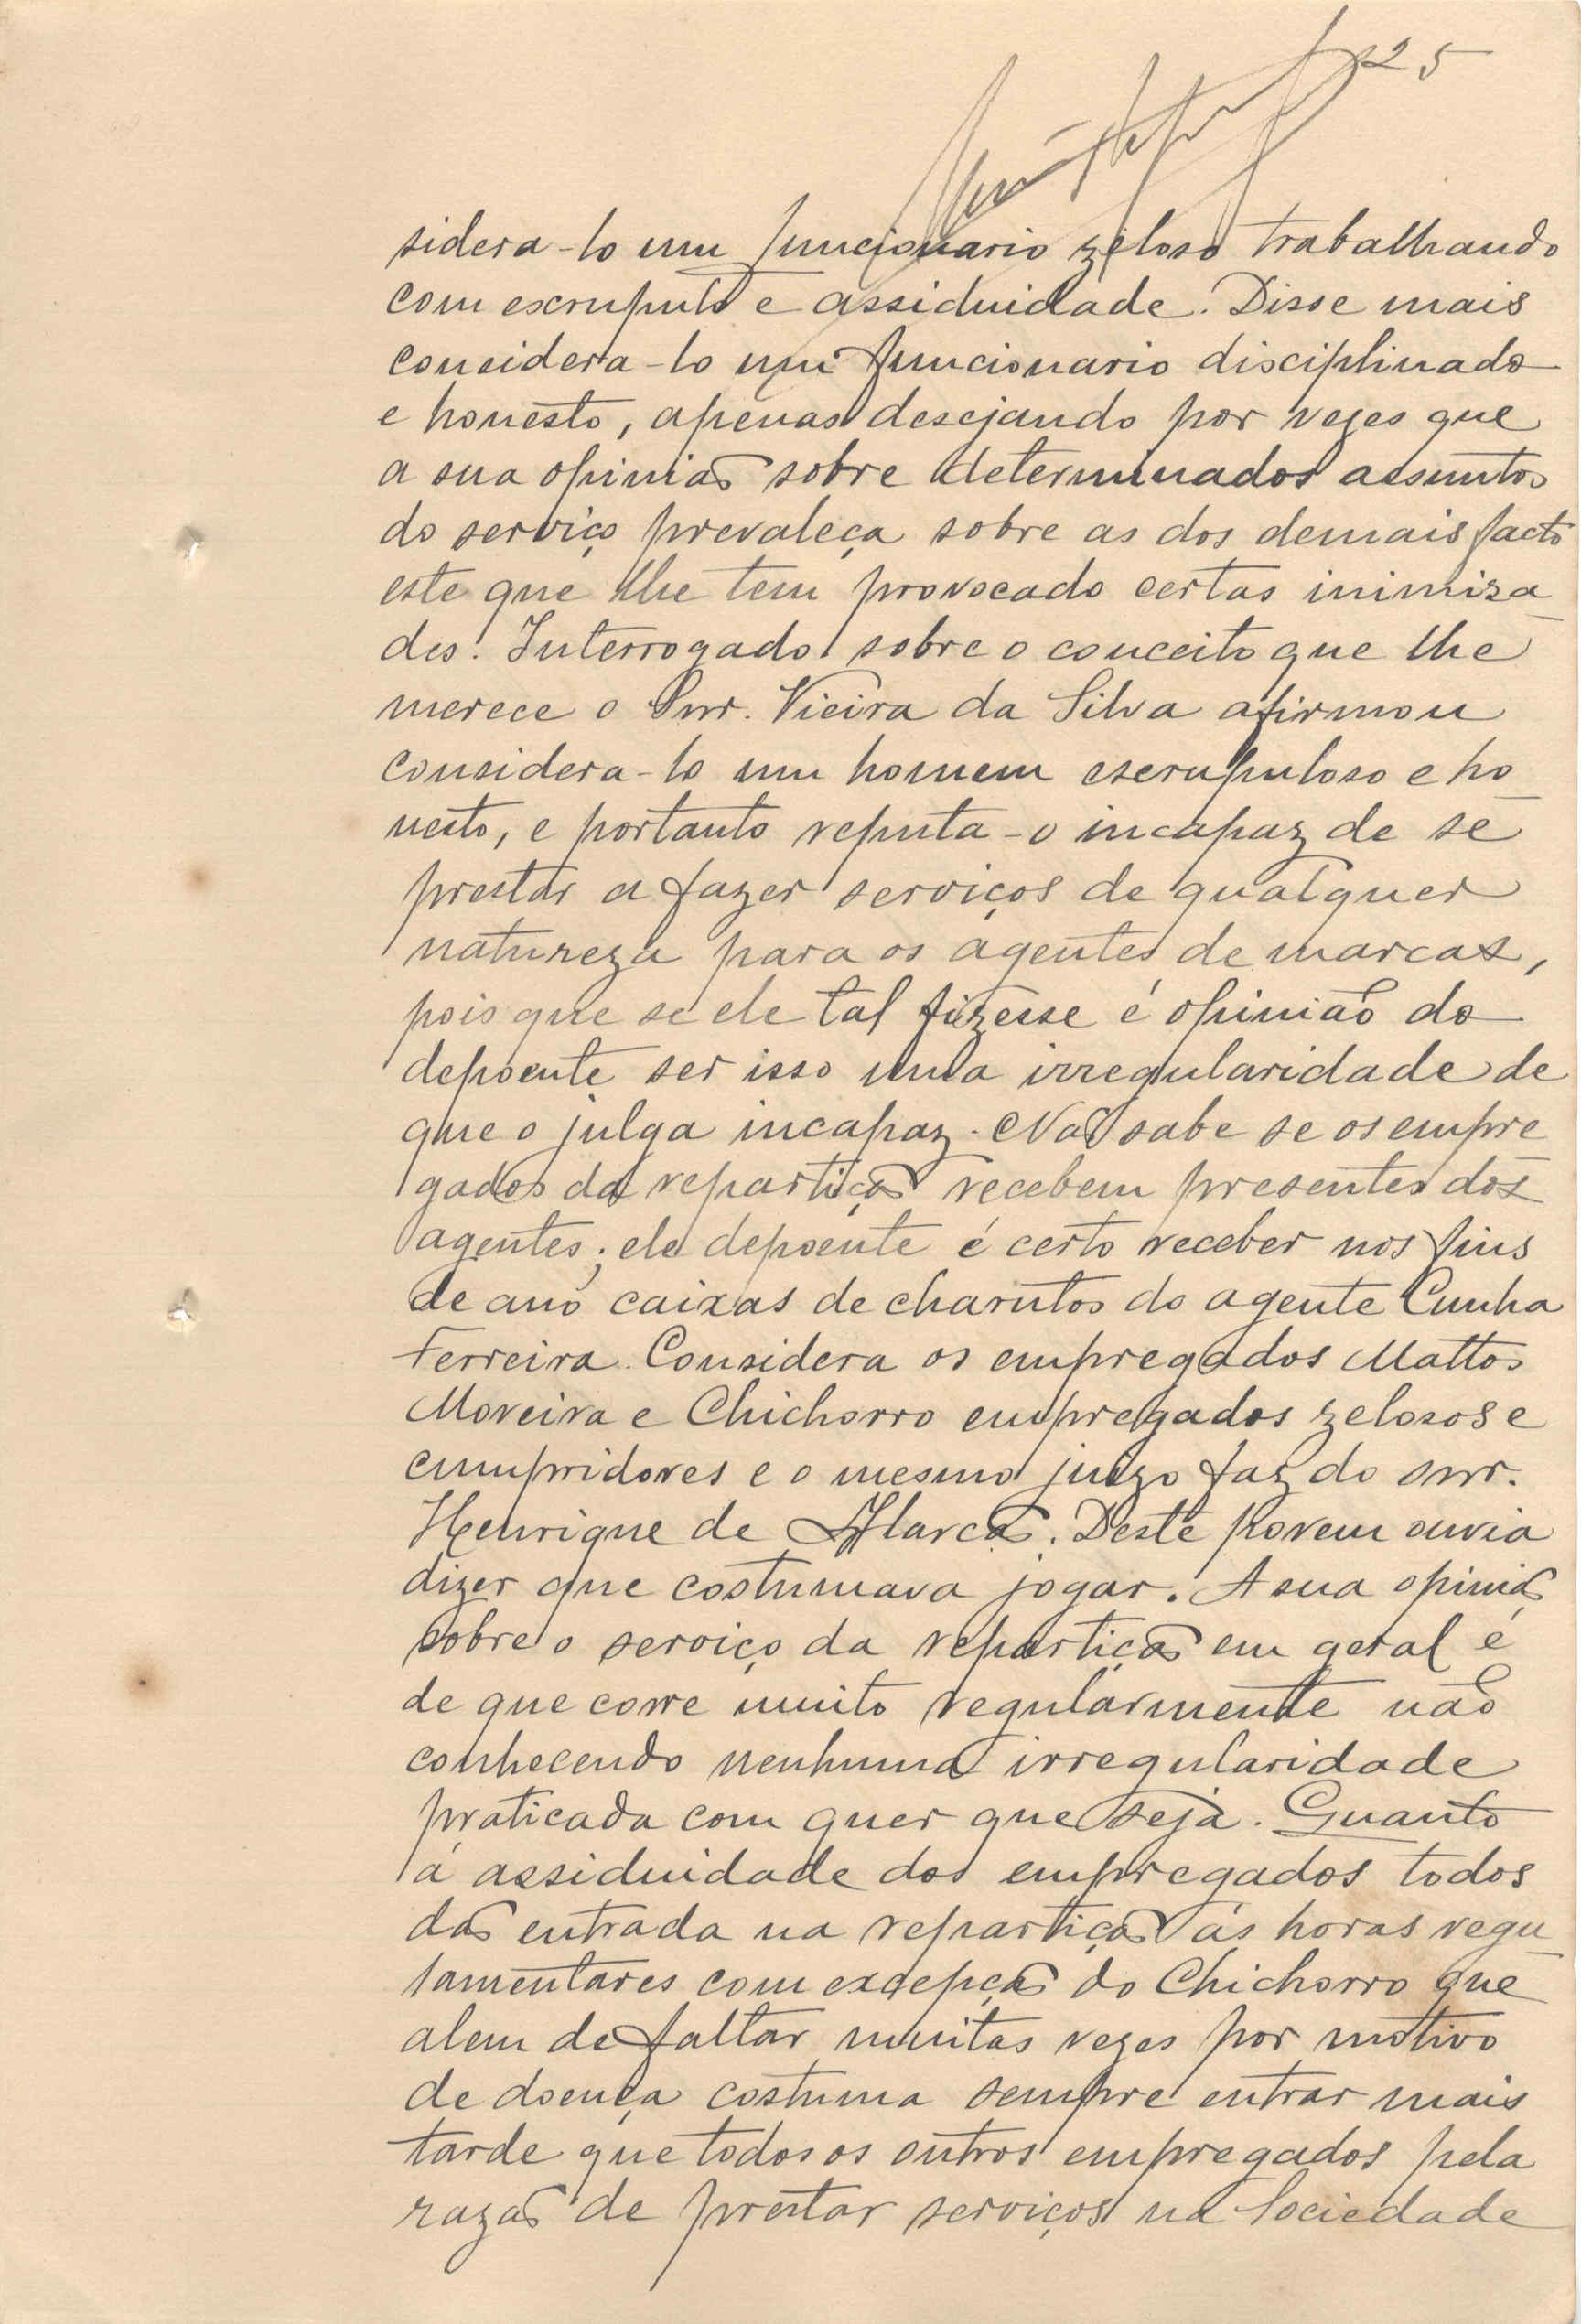 25
sidera-lo um funcionario zeloso trabalhando
com escrupulo e assiduidade. Disse mais
considera-lo um funcionario disciplinado
e honesto, apenas desejando por vezes que
a sua opinião sobre determinados assuntos
do serviço prevaleça sobre as dos demais facto
este que lhe tem provocado certas inimiza-
des. Interrogado sobre o conceito que lhe
merece o Snr. Vieira da Silva afirmou
considera-lo um homem escrupuloso e ho-
nesto, e portanto reputa-o incapaz de se
prestar a fazer serviços de qualquer
natureza para os agentes de marcas,
pois que se ele tal fizesse é opinião do
depoente ser isso uma irregularidade de
que o julga incapaz. Não sabe se os empre-
gados da repartição recebem presentes dos
agentes; ele depoente é certo receber nos fins
de ano caixas de charutos do agente Cunha
Ferreira. Considera os empregados Mattos
Moreira e Chichorro empregados zelosos e
cumpridores e o mesmo juizo faz do snr.
Henrique de Alarcão. Deste porem ouvia
dizer que costumava jogar. A sua opinião
sobre o serviço da repartição em geral é
de que corre muito regularmente não
conhecendo nenhuma irregularidade
praticada com quer que seja. Quanto
á assiduidade dos empregados todos
dão entrada na repartição ás horas regu-
lamentares com excepção do Chichorro que
alem de faltar muitas vezes por motivo
de doença costuma sempre entrar mais
tarde que todos os outros empregados pela
razão de prestar serviços na Sociedade